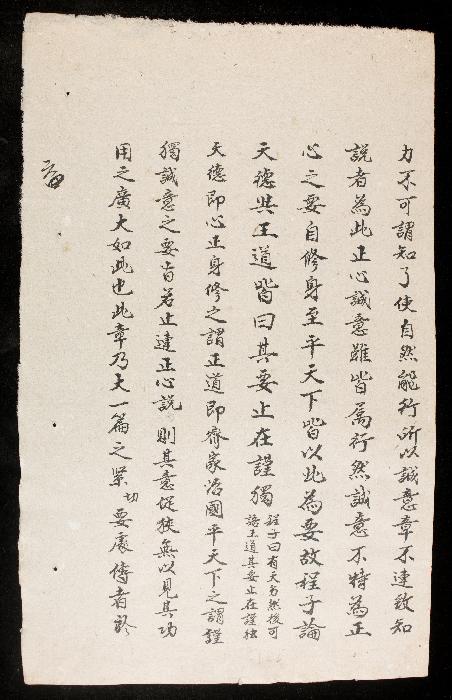 力不可謂知了便自然能行所以誠意章不連致知
説者為此正心誠意雖皆為行然誠意不特為正
心之要自修身至平天下皆以此為要故程子論
天德與王道皆曰其要止在謹獨
程子曰有天德然後可
語王道其要止在謹独
天德即心正身修之謂王道即齊家治國平天下之謂謹
獨誠意之要旨若止連正心説則其意促狹無以見其功
用之廣大如此也此章乃大一篇之緊切要處傳者於